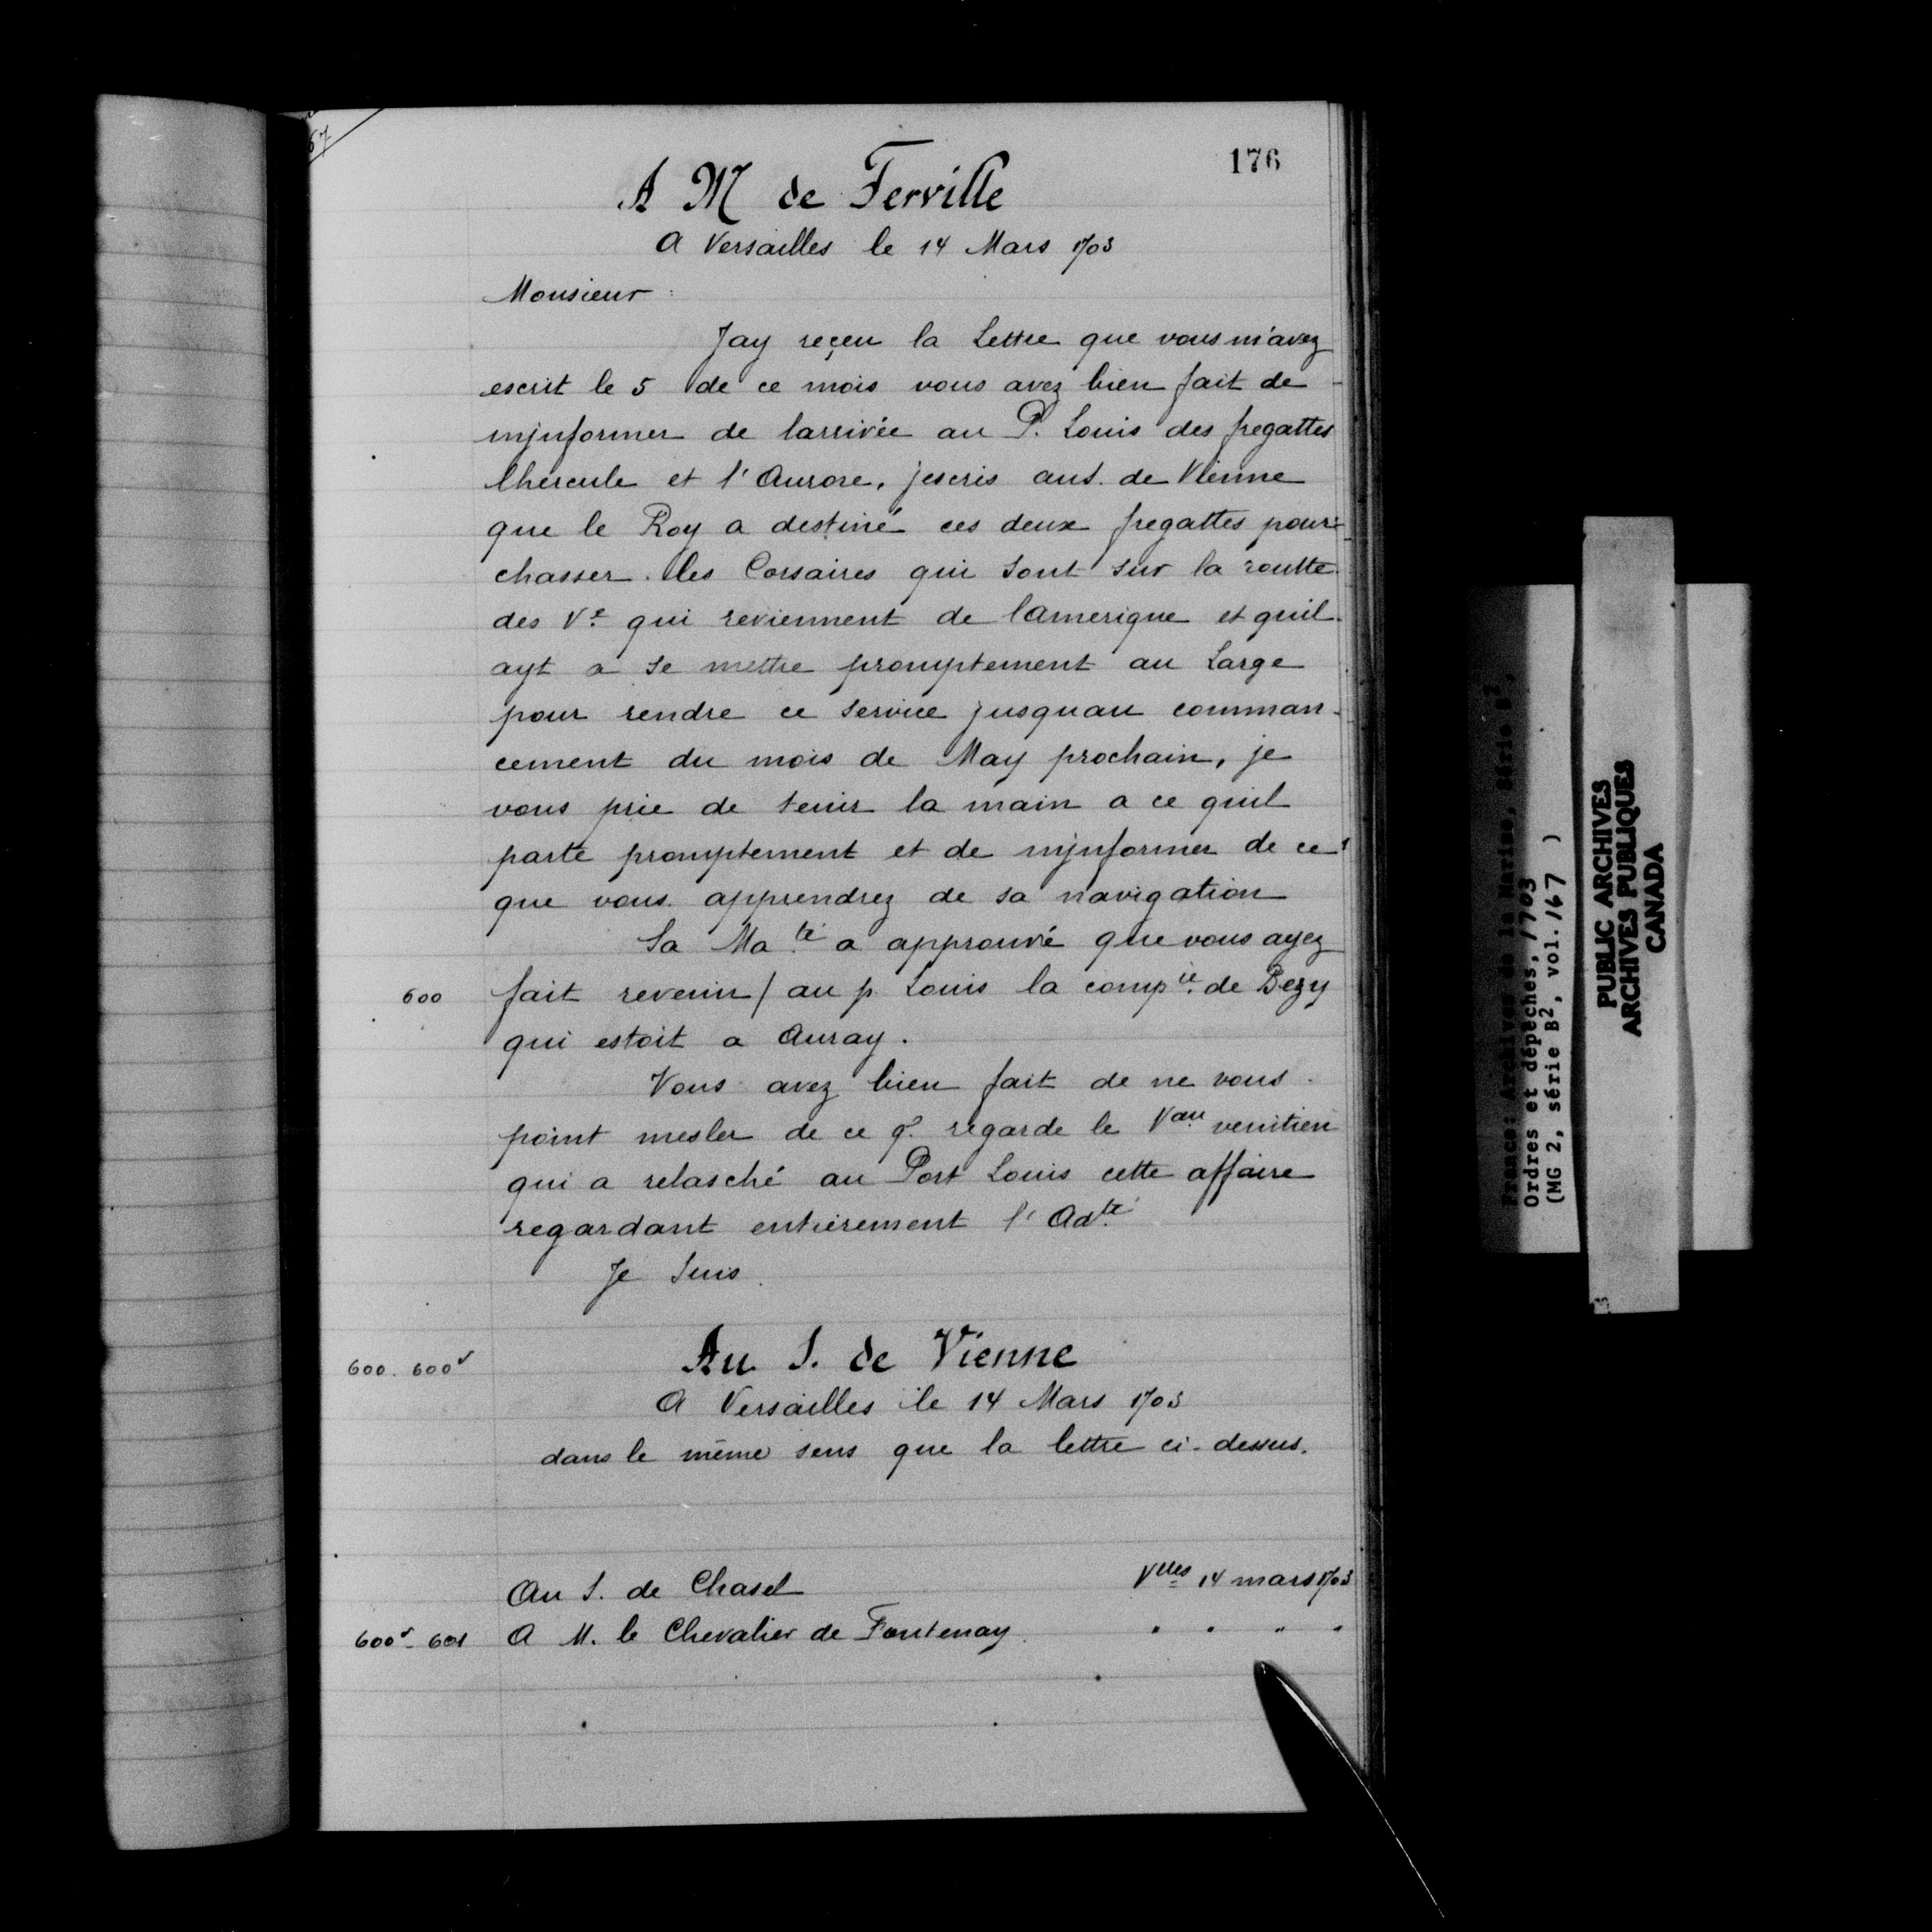 67
176
A M de Ferville
A Versailles le 14 Mars 1703
Monsieur
Jay reçeu la Lettre que vous m'avez
escrit le 5 de ce mois vous avez bien fait de
mjnformer de larrivée au P. Louis des fregattes
lhercule et l'Aurore, jescris au S. de Vienne
que le Roy a destiné ces deux fregattes pour
chasser les Corsaires qui sont sur la routte
des Vx qui reviennent de lamerique et quil
ayt a se mettre promptement au Large
pour rendre ce service jusquau comman-
cement du mois de May prochain, je
vous prie de tenir la main a ce quil
parte promptement et de mjnformer de ce
que vous apprendrez de sa navigation
Sa Ma.té a approuvé que vous ayez
600 fait revenir / au p. Louis la comp.ie de Bezy
qui estoit a Auray.
Vous avez bien fait de ne vous
point mesler de ce q. regarde le Vau venitien
qui a relasché au Port Louis cette affaire
regardant entièrement l'Ad.té
Je Suis
600. 600v Au S. de Vienne
A Versailles le 14 Mars 1703
dans le même sens que la lettre ci-dessus.
Au S. de Chasel Vlles 14 mars 1703
600v - 601 A M. le Chevalier de Fontenay " " " "
France: Archives de la Marine, Série B2,
Ordres et dépêches, 1703
(MG 2, série B2, vol. 167 )
PUBLIC ARCHIVES
ARCHIVES PUBLIQUES
CANADA